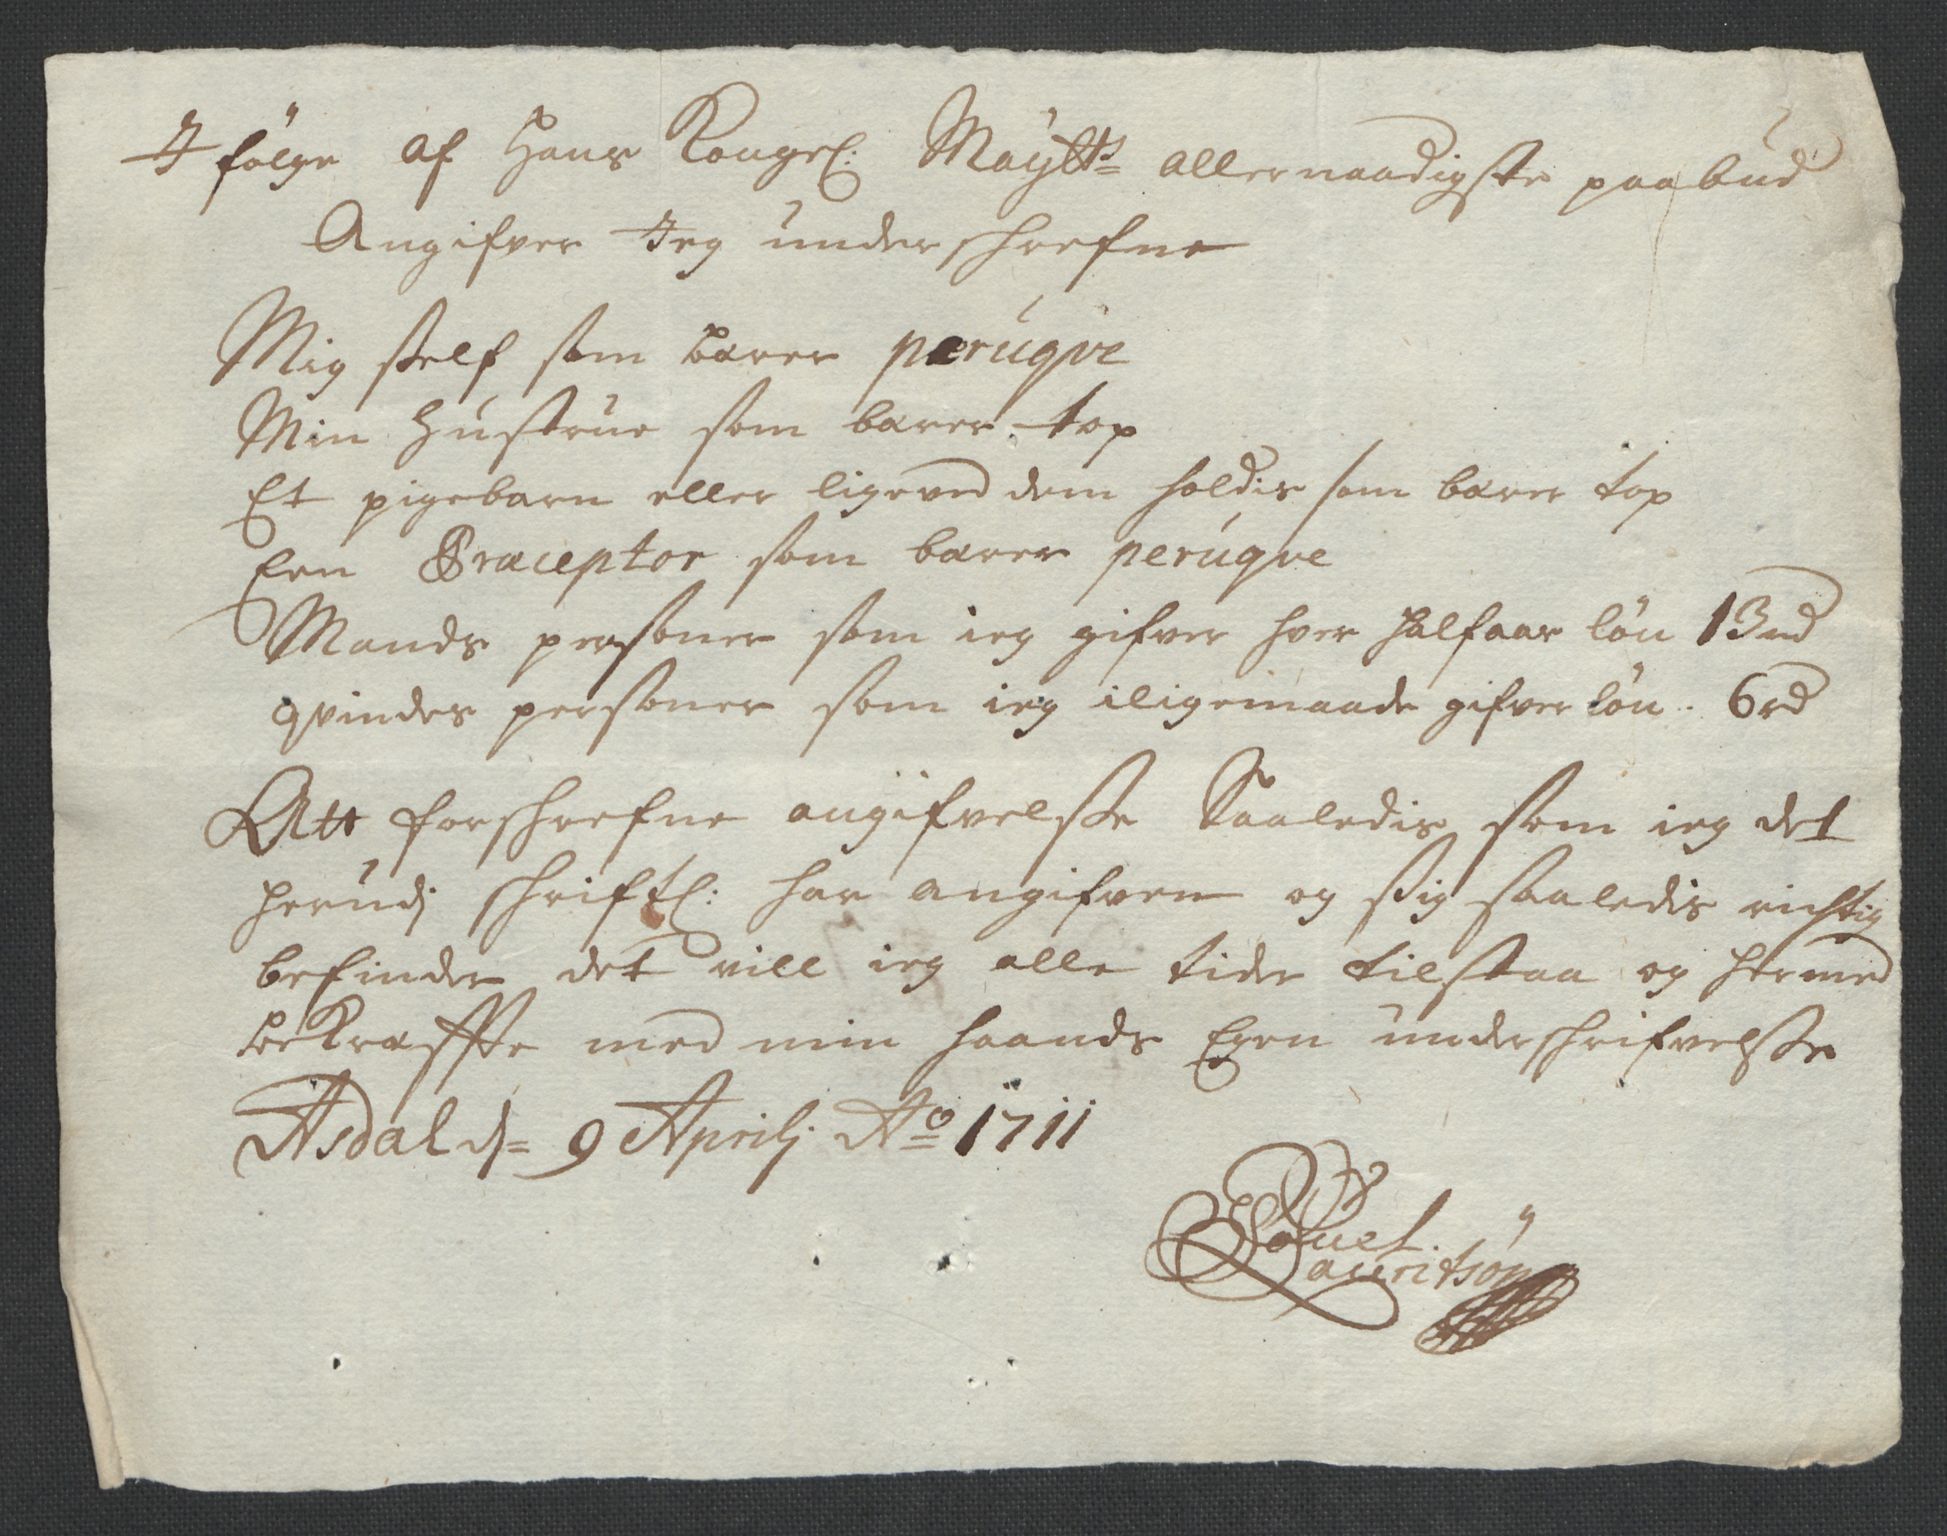 I følge af Hans Kongel: Mayttz allernaadigste paabud
Angifver Jeg underschrefne
Mig self som bærer peruqve
Min Hustrue som bærer top
Et pigebarn eller ligeved dem holdis som bærer top
Een Præceptor som bærer peruqve
Mands personer som ieg gifver hver halfaar løn 13 rd
qvindes personer som ieg iligemaade gifver løn. 6 rd
Att forschrefne angifvelsse Saaledis som ieg det
herudj schriftl: har angifven og sig saaledis richtig
befinder det vill ieg alle tider tilstaa og hermed
bekræffte med min haands Egen underschrifvelsse
Asdal d= 9 Aprilj Ao 1711
Pouel
Lauritsøn